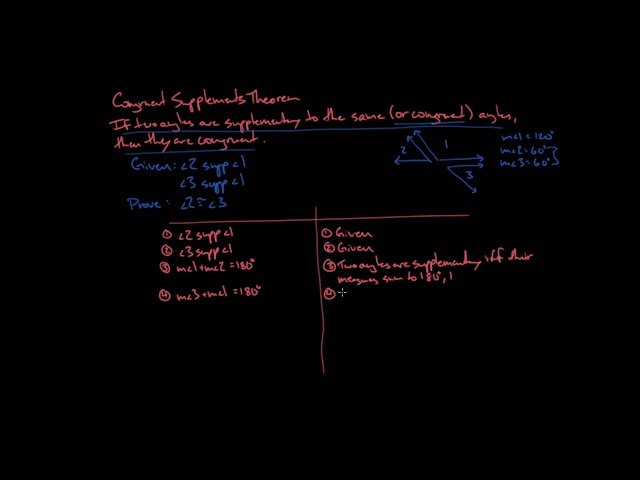 Congruent Supplements Theorem
If two angles are supplementary to the same (or congruent) angles,
then they are congruent.
Given: ∠2 supp ∠1
∠3 supp ∠1
Prove: ∠2 ≅ ∠3
2
1
3
m∠1 = 120°
m∠2 = 60°
m∠3 = 60°
① ∠2 supp ∠1
① Given
② ∠3 supp ∠1
② Given
③ m∠1 + m∠2 = 180°
③ Two angles are supplementary iff their
measures sum to 180°, 1
④ m∠3 + m∠1 = 180°
④